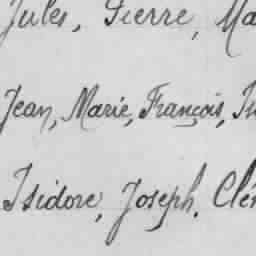 Jules, Pierre,
Jean, Marie, François,
Isidore, Joseph,